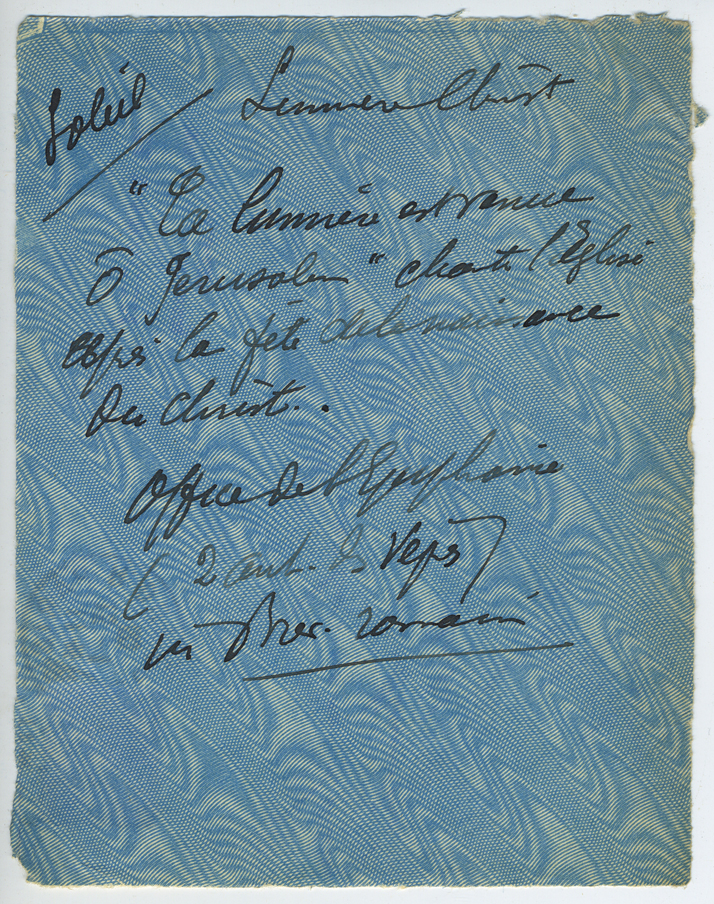 Soleil / Lumière Christ
"Ta lumière est venue
ô Jerusalem" chante l'Eglise
après la fête de la naissance
du Christ..
Office de l'Epiphanie
(2 ant. des Vepres)
in Brev. romain